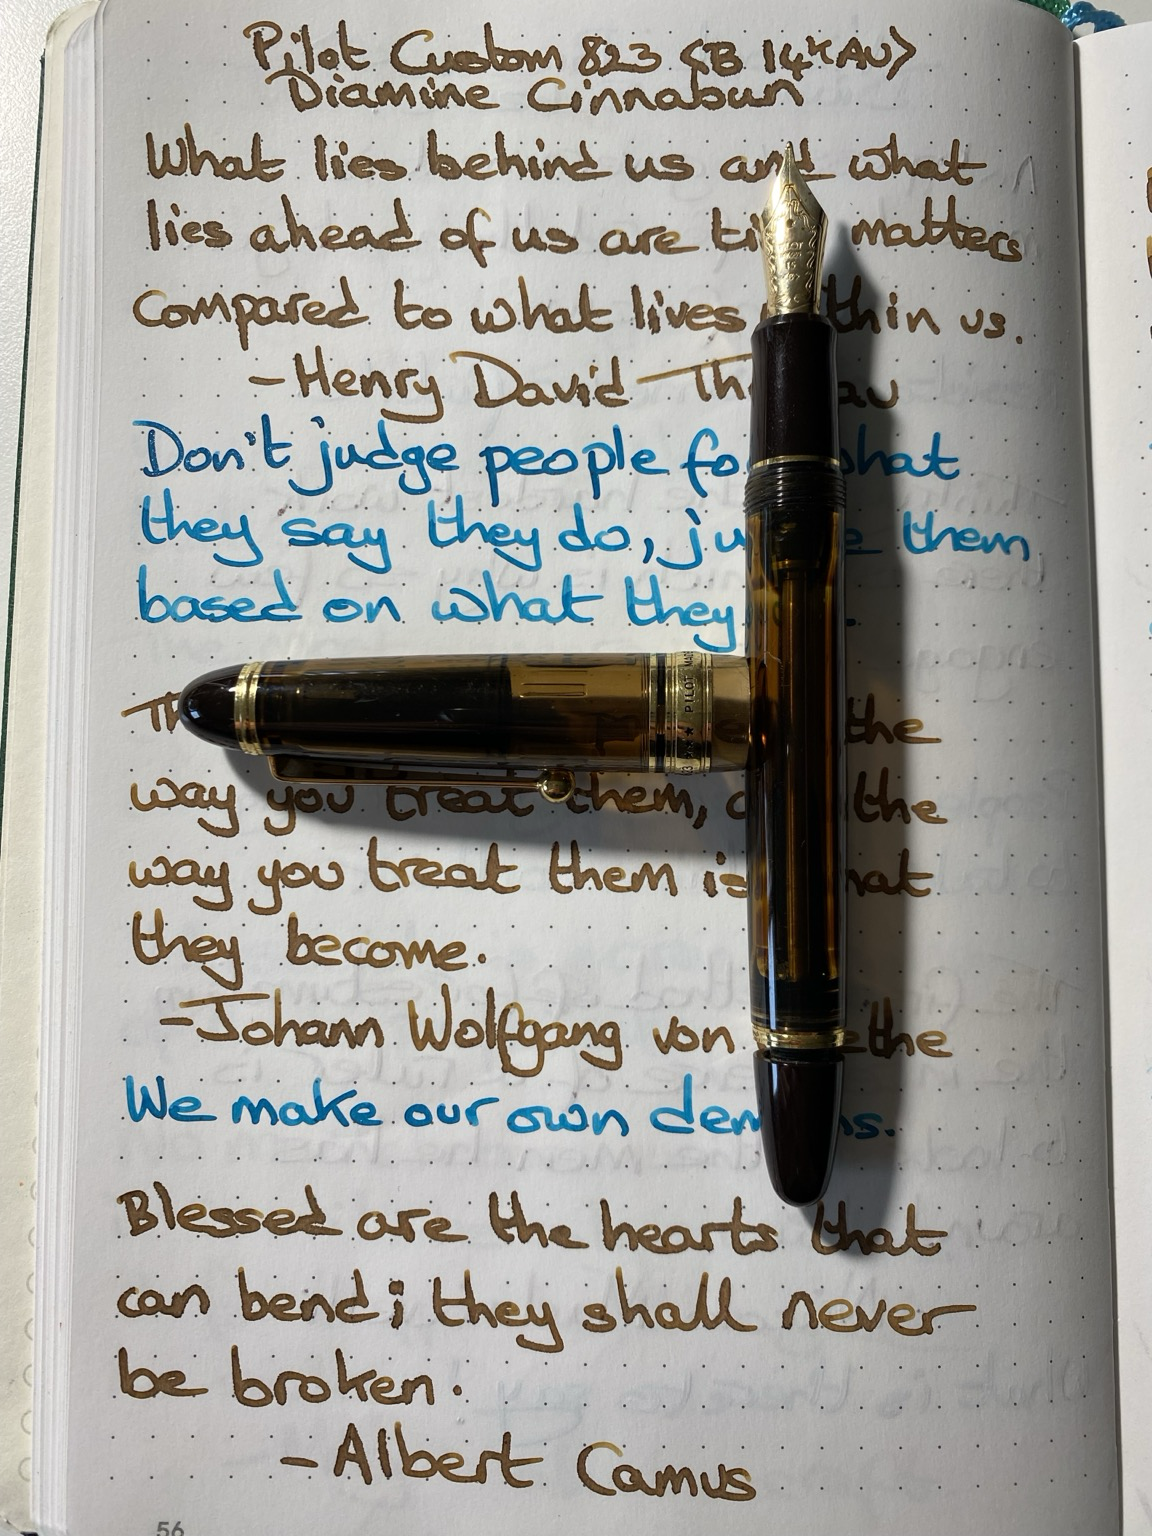 Pilot Custom 823 <B 14k AU>
Diamine Cinnabun
What lies behind us and what
lies ahead of us are ti matters
compared to what lives thin us.
-Henry David Th au
Don't judge people fo hat
they say they do, ju e them
based on what they .
Th the
way you treat them, the
way you treat them is hat
they become.
-Johann Wolfgang von ethe
We make our own dem ns.
Blessed are the hearts that
can bend; they shall never
be broken.
-Albert Camus
PILOT MADE
56